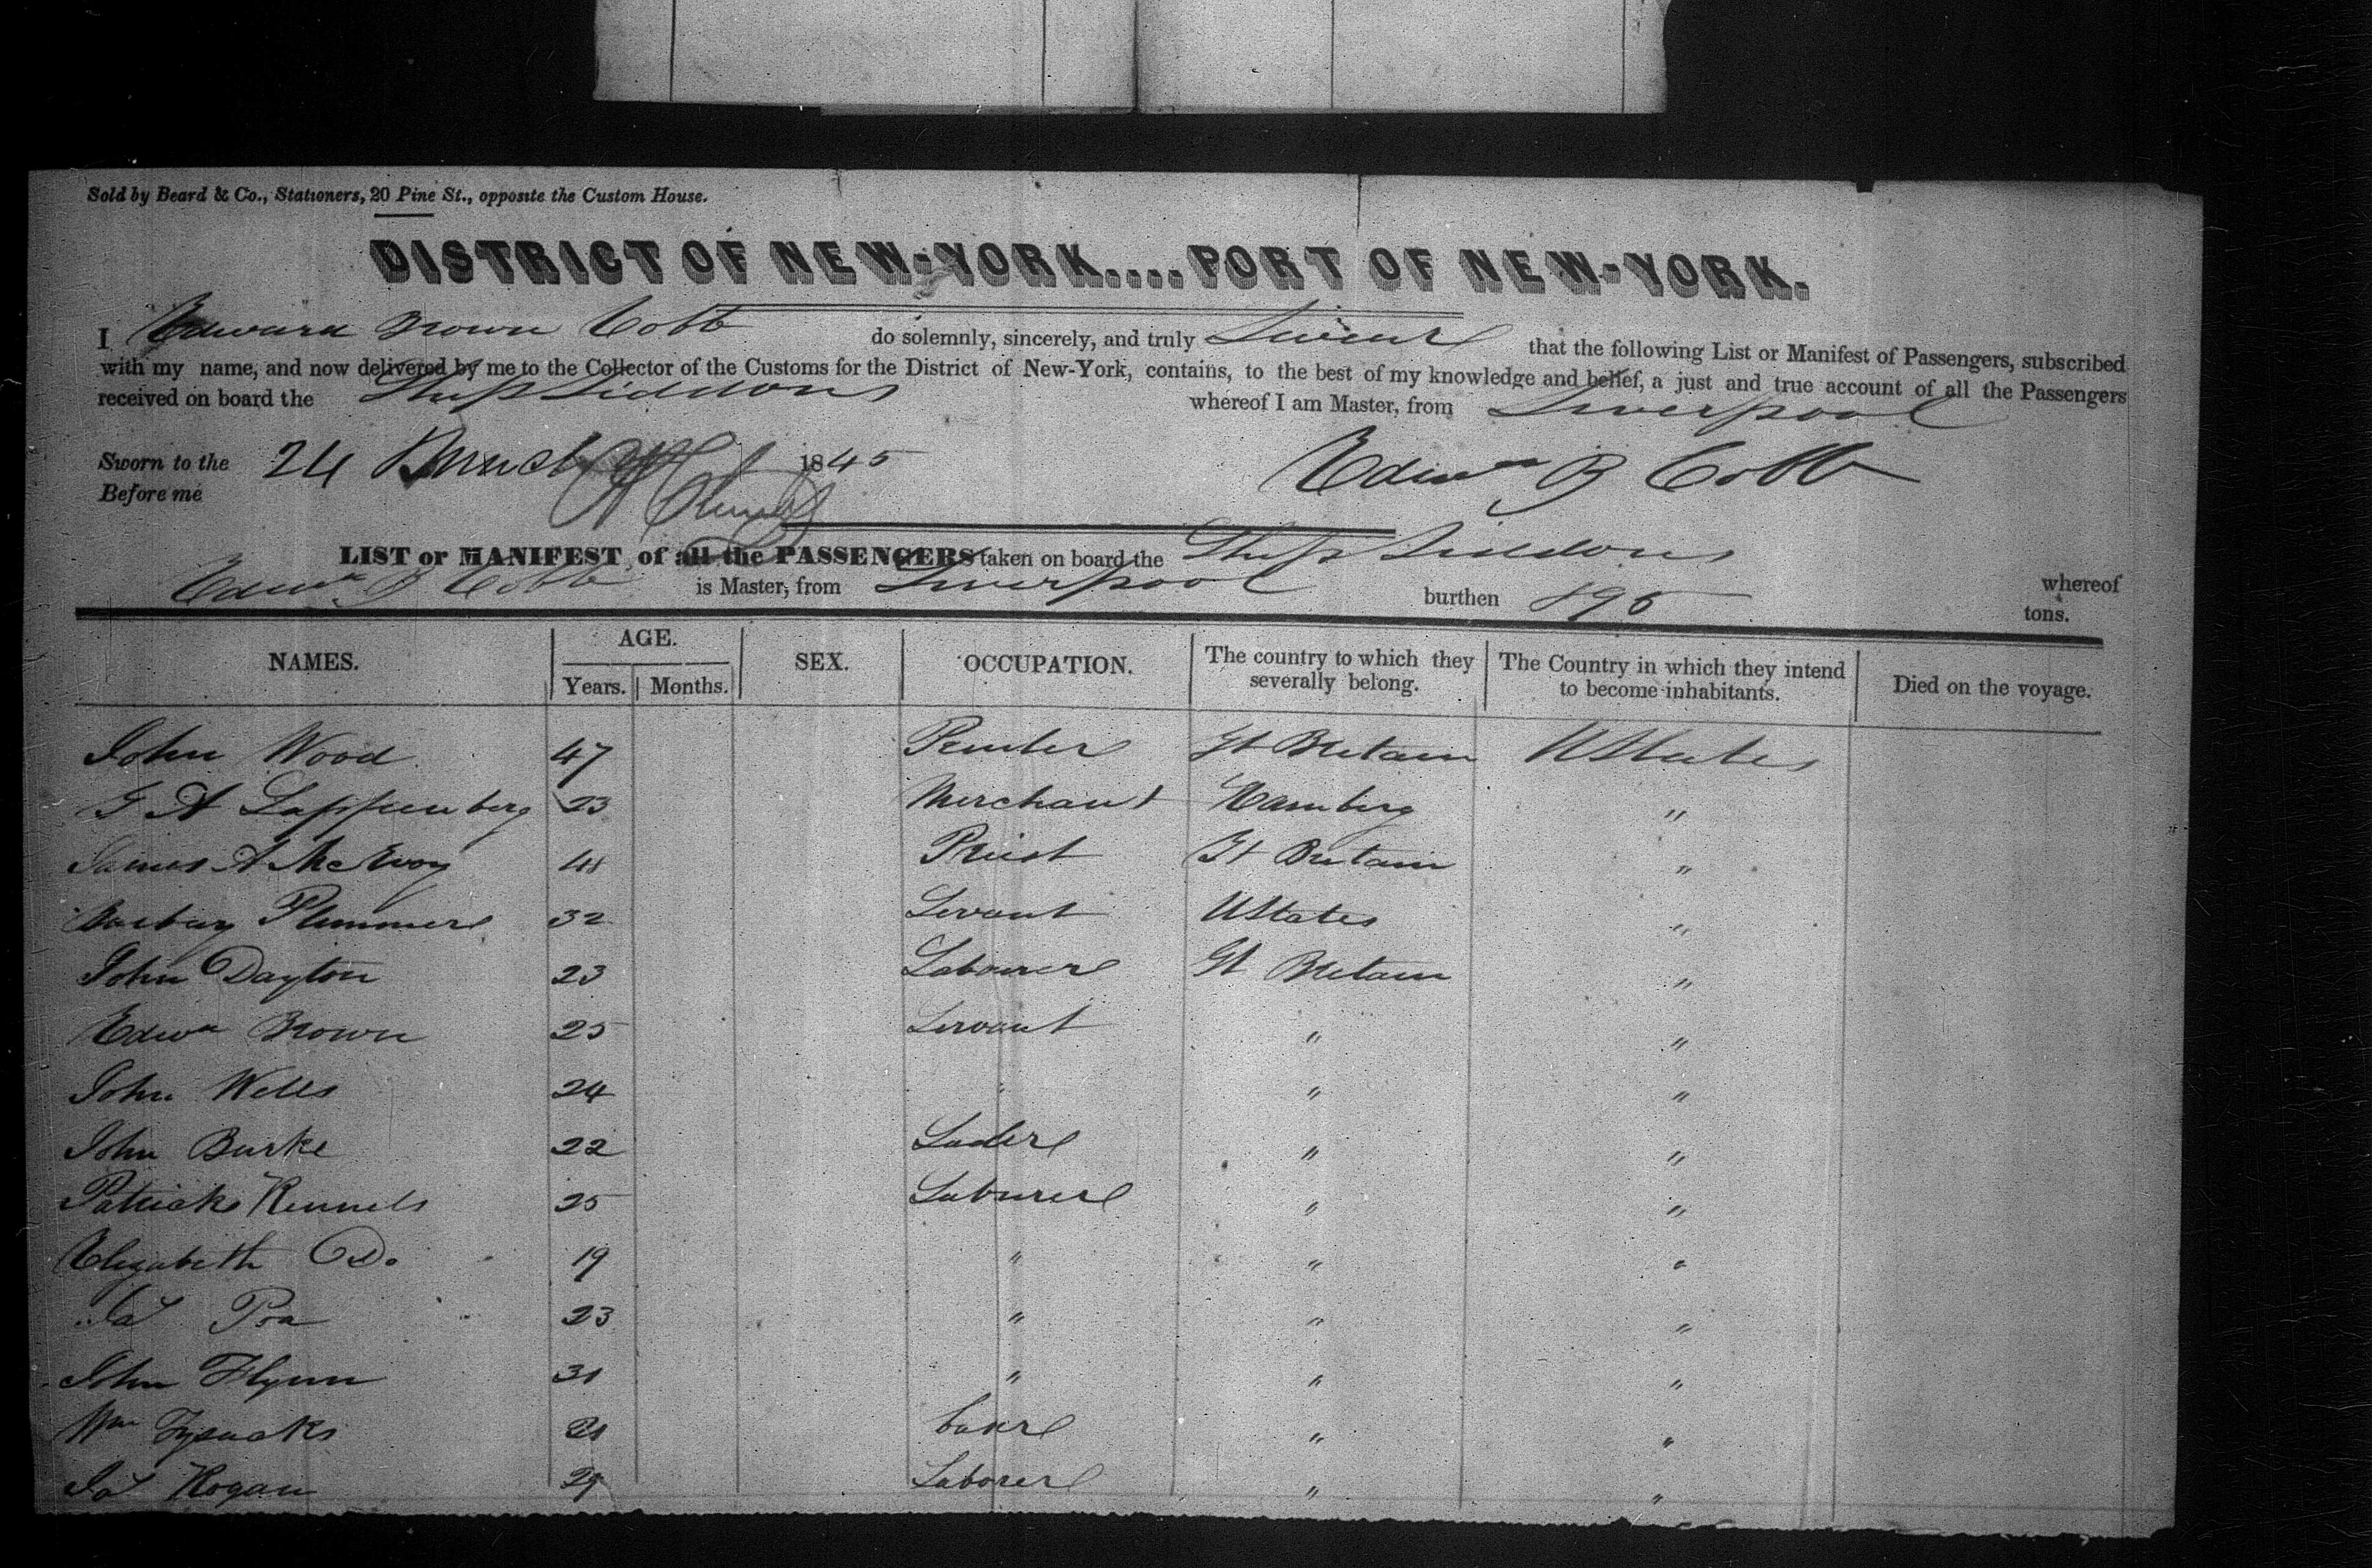 Sold by Beard & Co., Stationers, 20 Pine St., opposite the Custom House.
DISTRICT OF NEW-YORK....PORT OF NEW-YORK.
I Edward Brown Cobb do solemnly, sincerely, and truly Swear that the following List or Manifest of Passengers, subscribed
with my name, and now delivered by me to the Collector of the Customs for the District of New-York, contains, to the best of my knowledge and belief, a just and true account of all the Passengers
received on board the Ship Siddons whereof I am Master, from Liverpool
Sworn to the 24 1845
Before me
Edwd B Cobb
LIST or MANIFEST of all the PASSENGERS taken on board the Ship Siddons whereof
Edwd B Cobb is Master, from Liverpool burthen 895 tons.
NAMES. AGE. Years. Months. SEX. OCCUPATION. The country to which they severally belong. The Country in which they intend to become inhabitants. Died on the voyage.
John Wood 47 Gt Britain UStates
Lappenberg 23 Merchant Hamburg "
James A McEvoy Priest Gt Britain "
Plummer 32 Servant UStates "
John Dayton 23 Labourer Gt Britain "
Edwd Brown 25 Servant " "
John Wells 24 " " "
John Burke 22 " "
Patrick Kennels 25 Labourer " "
Elizabeth Do 19 " " "
23 " " "
John Flynn 31 " " "
Wm 21 " "
Jas Hogan 29 Laborer " "